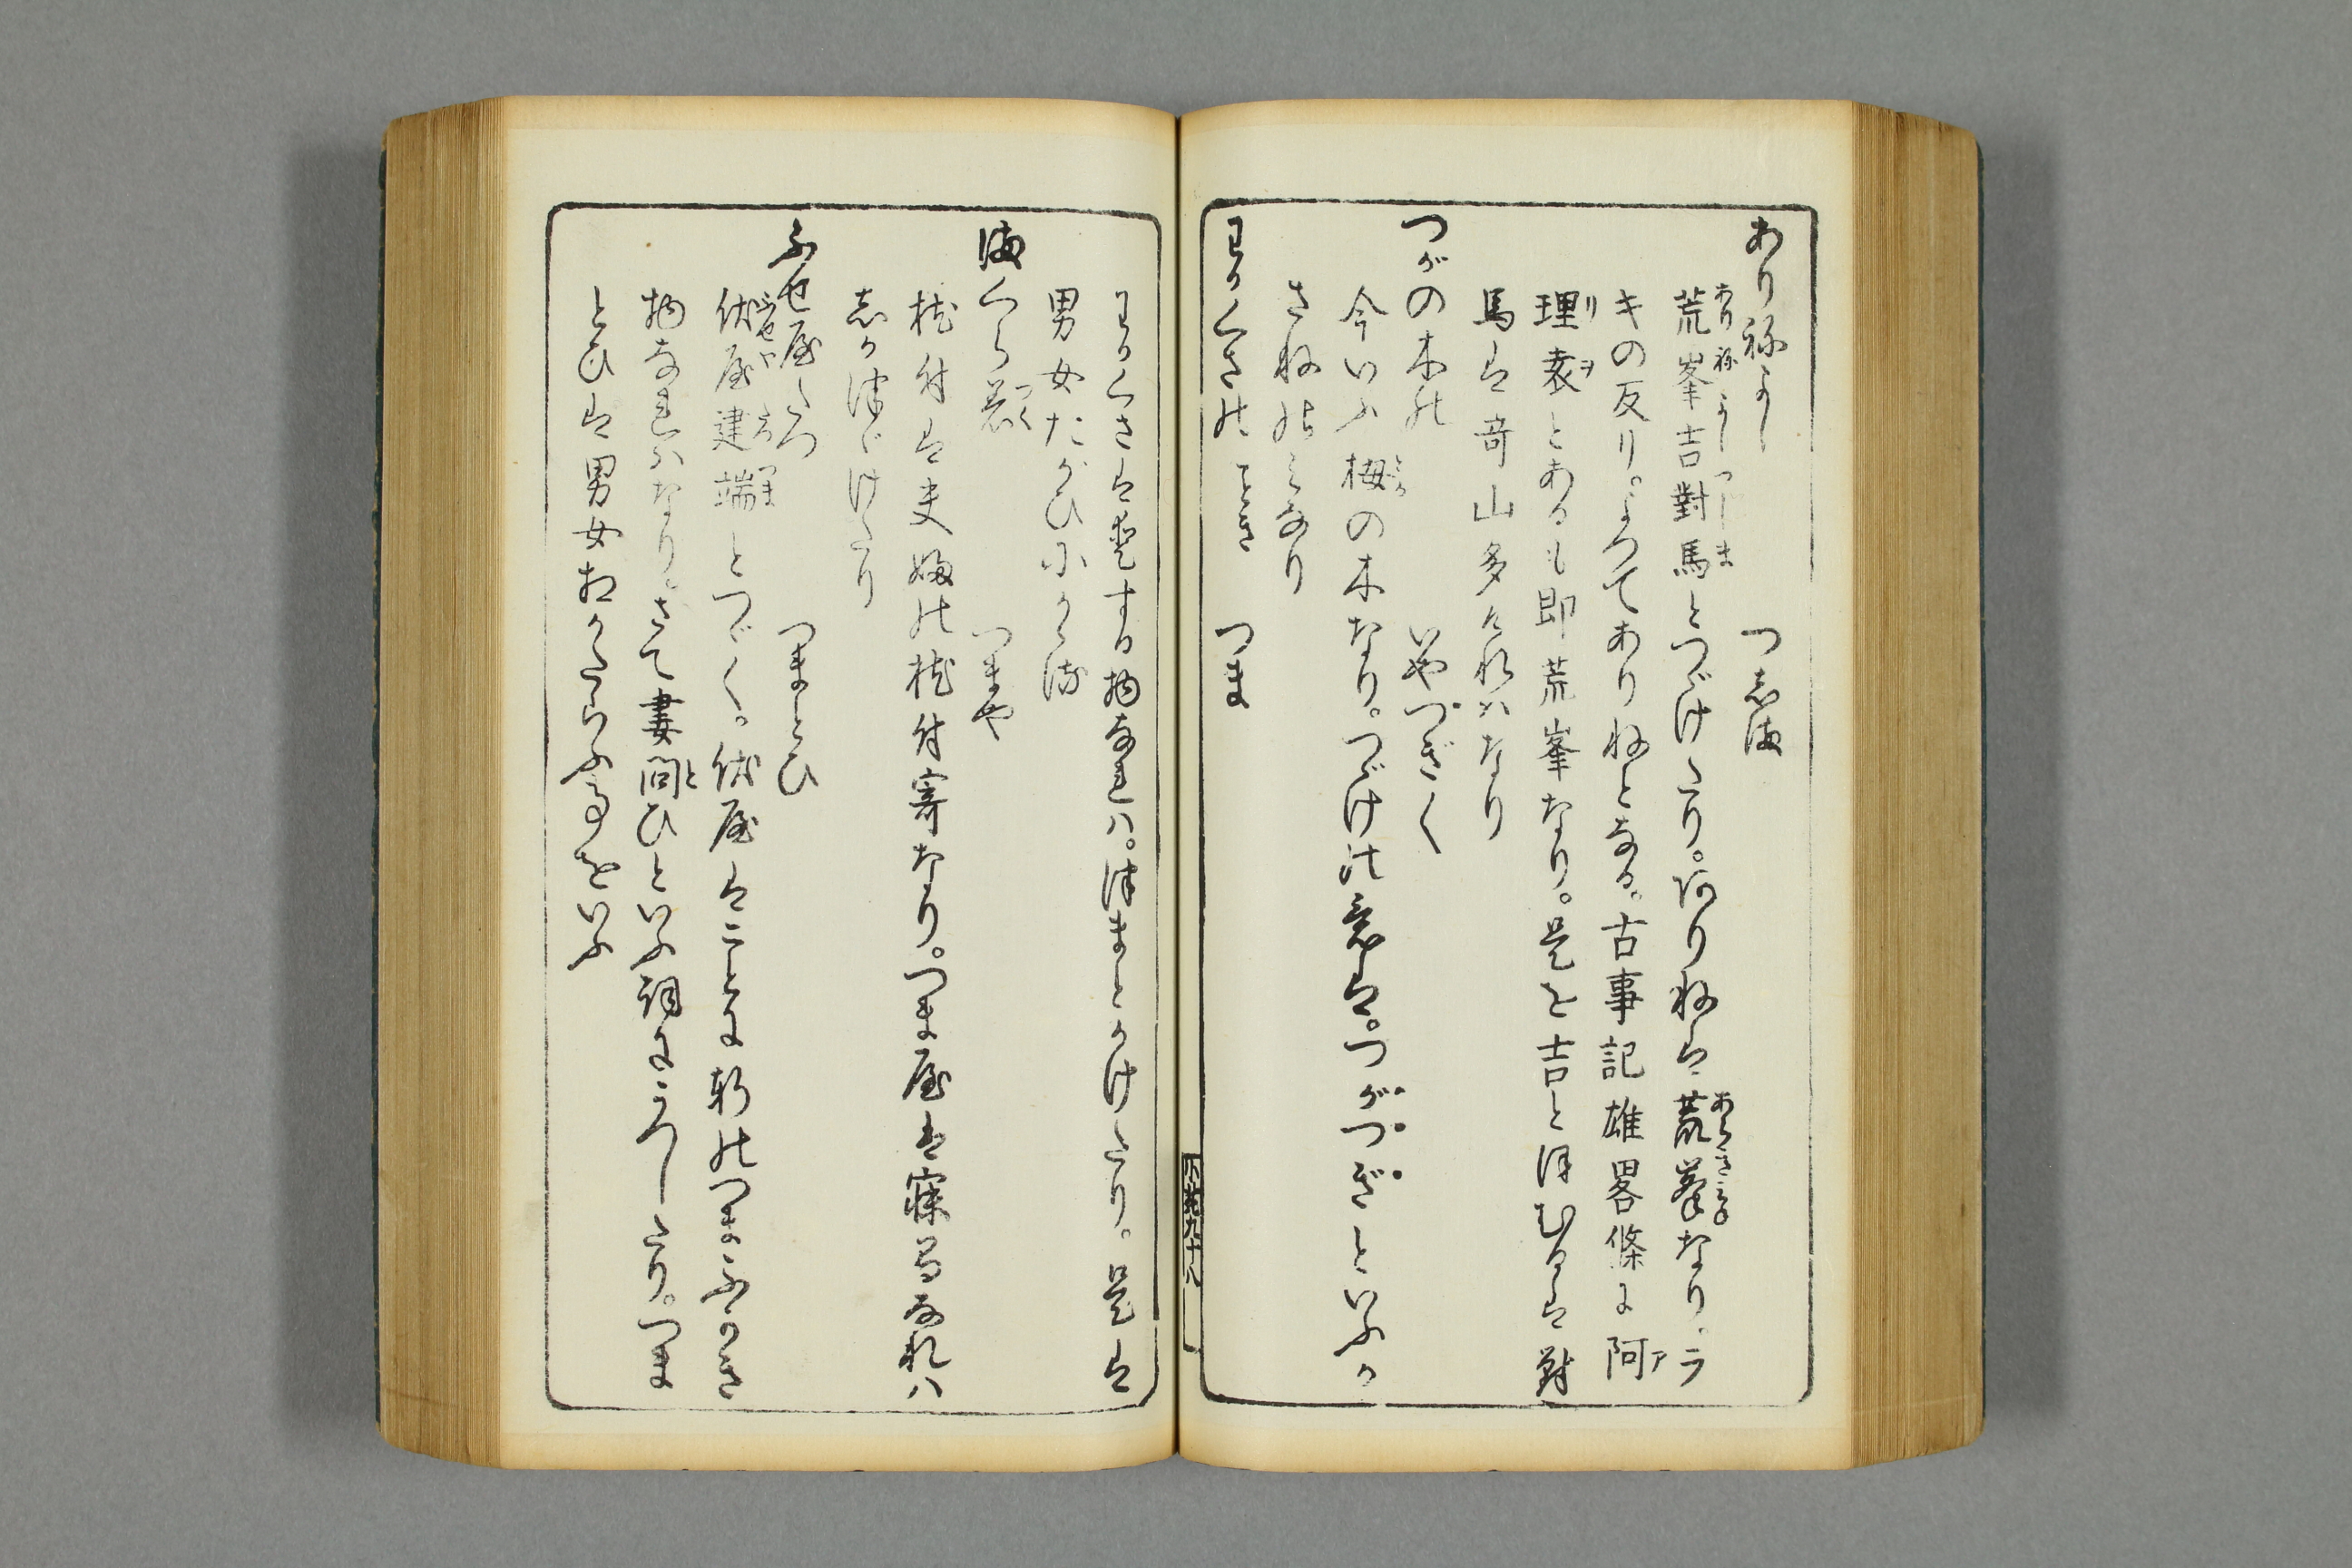 ありねよし　つしま
荒峯吉對馬とつゞけたり。ありねは荒峯なり。ラ
キの反リ。よつてありねとなる。古事記雄畧條に阿
理袁とあるも即荒峯なり。是を吉とほむるは對
馬は奇山多ければなり
つがの木の　いやつぎ〱
今いふ栂の木なり。つゞけの意は。つがつぎといふか
さねのみなり
わかくさの　つま
わかくさは愛する物なれハ。つまとかけたり。是は
男女たがひにかよはす
まくらづく　つまや
枕付は夫婦の枕付寄なり。つま屋は寐る間なれハ
しかつゞけたり
ふせ屋たつ　つまとひ
伏屋建端とつゞく。伏屋はことに軒のつまふかき
物なれハなり。さて妻問ひといふ詞にうつしたり。つま
とひは男女相かたらふ事をいふ
下九十八